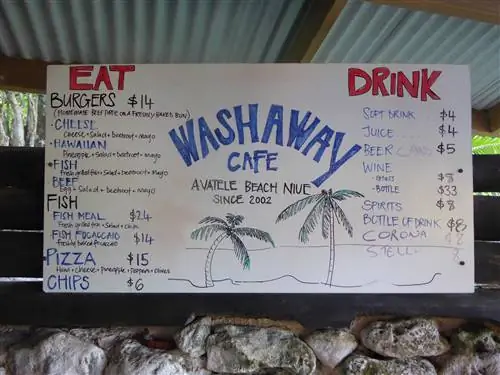 EAT
BURGERS $14
(HOMEMADE BEEF PATTIE ON A FRESHLY BAKED BUN)
• CHEESE
Cheese + Salad + beetroot + mayo
• HAWAIIAN
Pineapple + Salad + beetroot + mayo
• FISH
Fresh grilled fish + Salad + beetroot + mayo
BEEF
Egg + Salad + beetroot + mayo
FISH
FISH MEAL $24
Fresh grilled fish + Salad + Chips
FISH FOCACCIO $14
freshly baked focaccio
PIZZA $15
Ham + cheese + pineapple + peppers + olives
CHIPS $6
WASHAWAY
CAFE
AVATELE BEACH NIUE
SINCE 2002
DRINK
SOFT DRINK $4
JUICE $4
BEER CANS $5
WINE
- GLASS $8
- BOTTLE $33
SPIRITS $8
BOTTLE OF DRINK $8
CORONA 8
STELLA 8